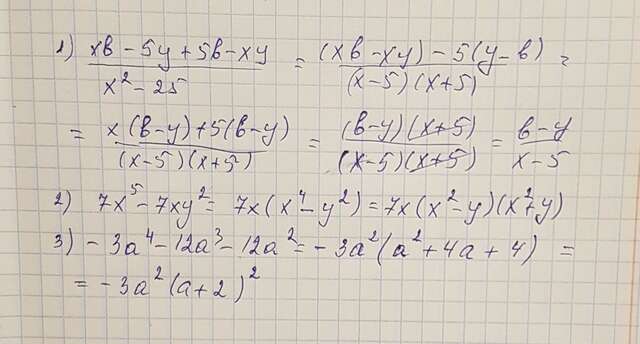 1) (xb - 5y + 5b - xy)/(x² - 25) = ((xb - xy) - 5(y - b))/((x-5)(x+5)) =
= (x(b-y)+5(b-y))/((x-5)(x+5)) = ((b-y)(x+5))/((x-5)(x+5)) = (b-y)/(x-5)
2) 7x⁵ - 7xy² = 7x(x⁴ - y²) = 7x(x² - y)(x² + y)
3) - 3a⁴ - 12a³ - 12a² = - 3a²(a² + 4a + 4) =
= - 3a²(a+2)²